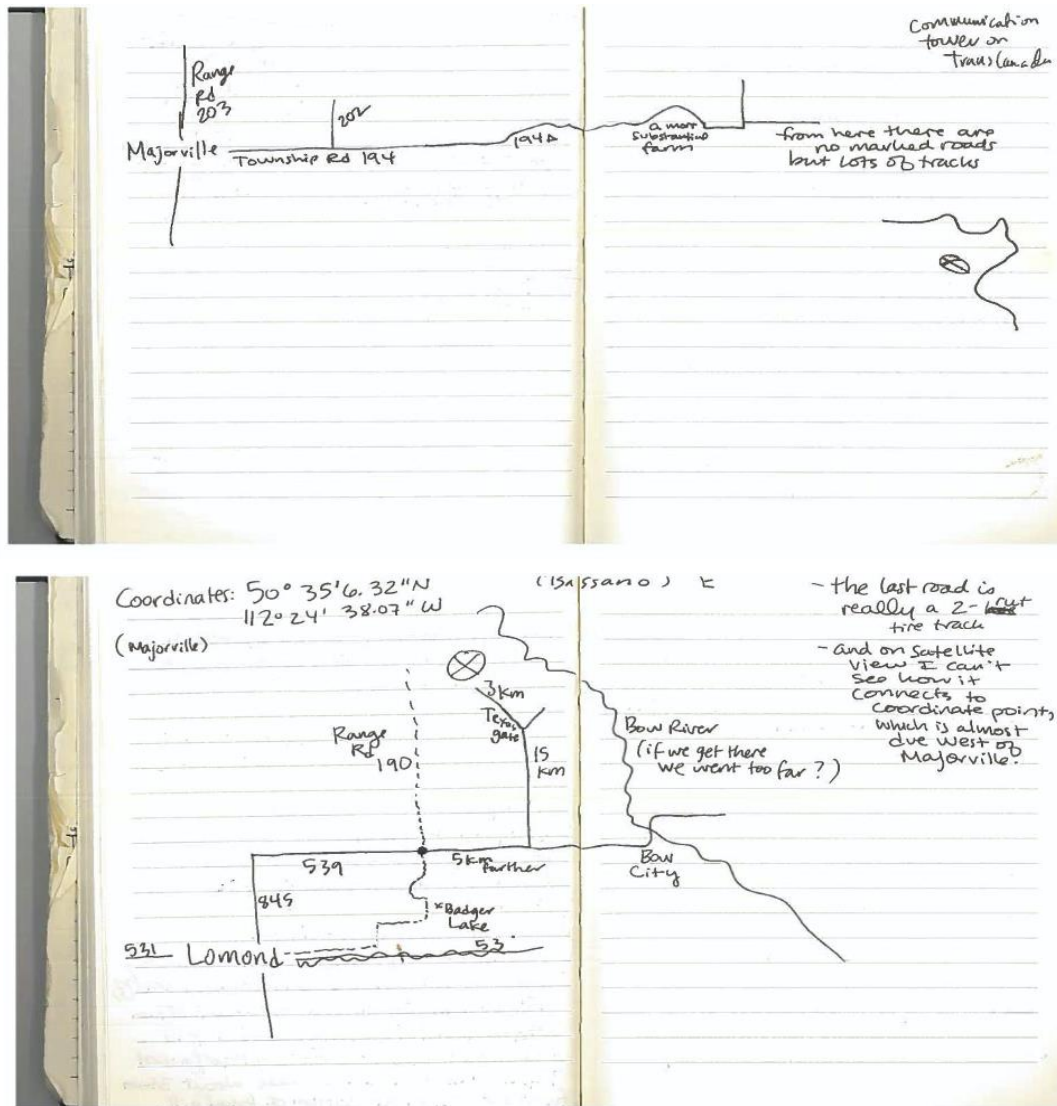 Communication
tower on
TransCanada
Range
Rd
203
202
Majorville
Township Rd 194
194A
a more
substantial
farm
from here there are
no marked roads
but lots of tracks
Coordinates: 50° 35' 6.32" N
112° 24' 38.07" W
(Majorville)
(Bassano)
- the last road is
really a 2-rut
tire track
- and on satellite
view I can't
see how it
connects to
coordinate point,
which is almost
due west of
Majorville.
3 km
Texas
gate
15
km
Range
Rd
190
Bow River
(if we get there
we went too far?)
539
5 km
further
Bow
City
845
*Badger
Lake
531
Lomond
53